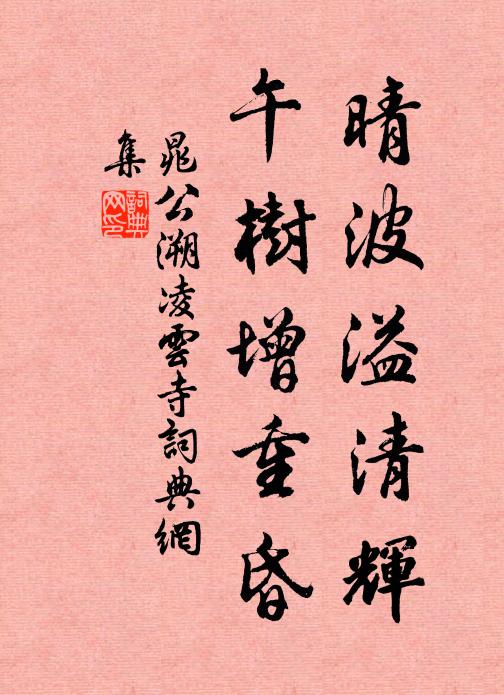 晴波溢清輝
午樹增重昏
晁公溯凌雲寺詞典網
集
詞典網印